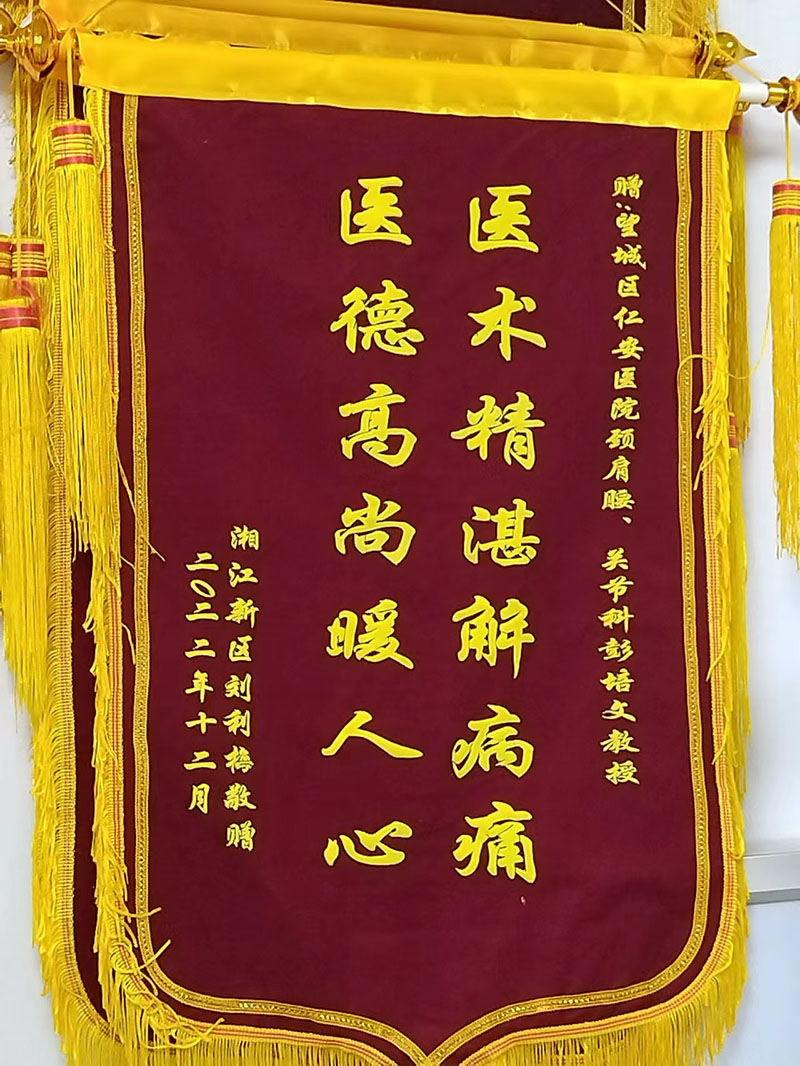 赠:望城区仁安医院颈肩腰、关节科彭培文教授
医术精湛解病痛
医德高尚暖人心
湘江新区刘利梅敬赠
二〇二二年十二月